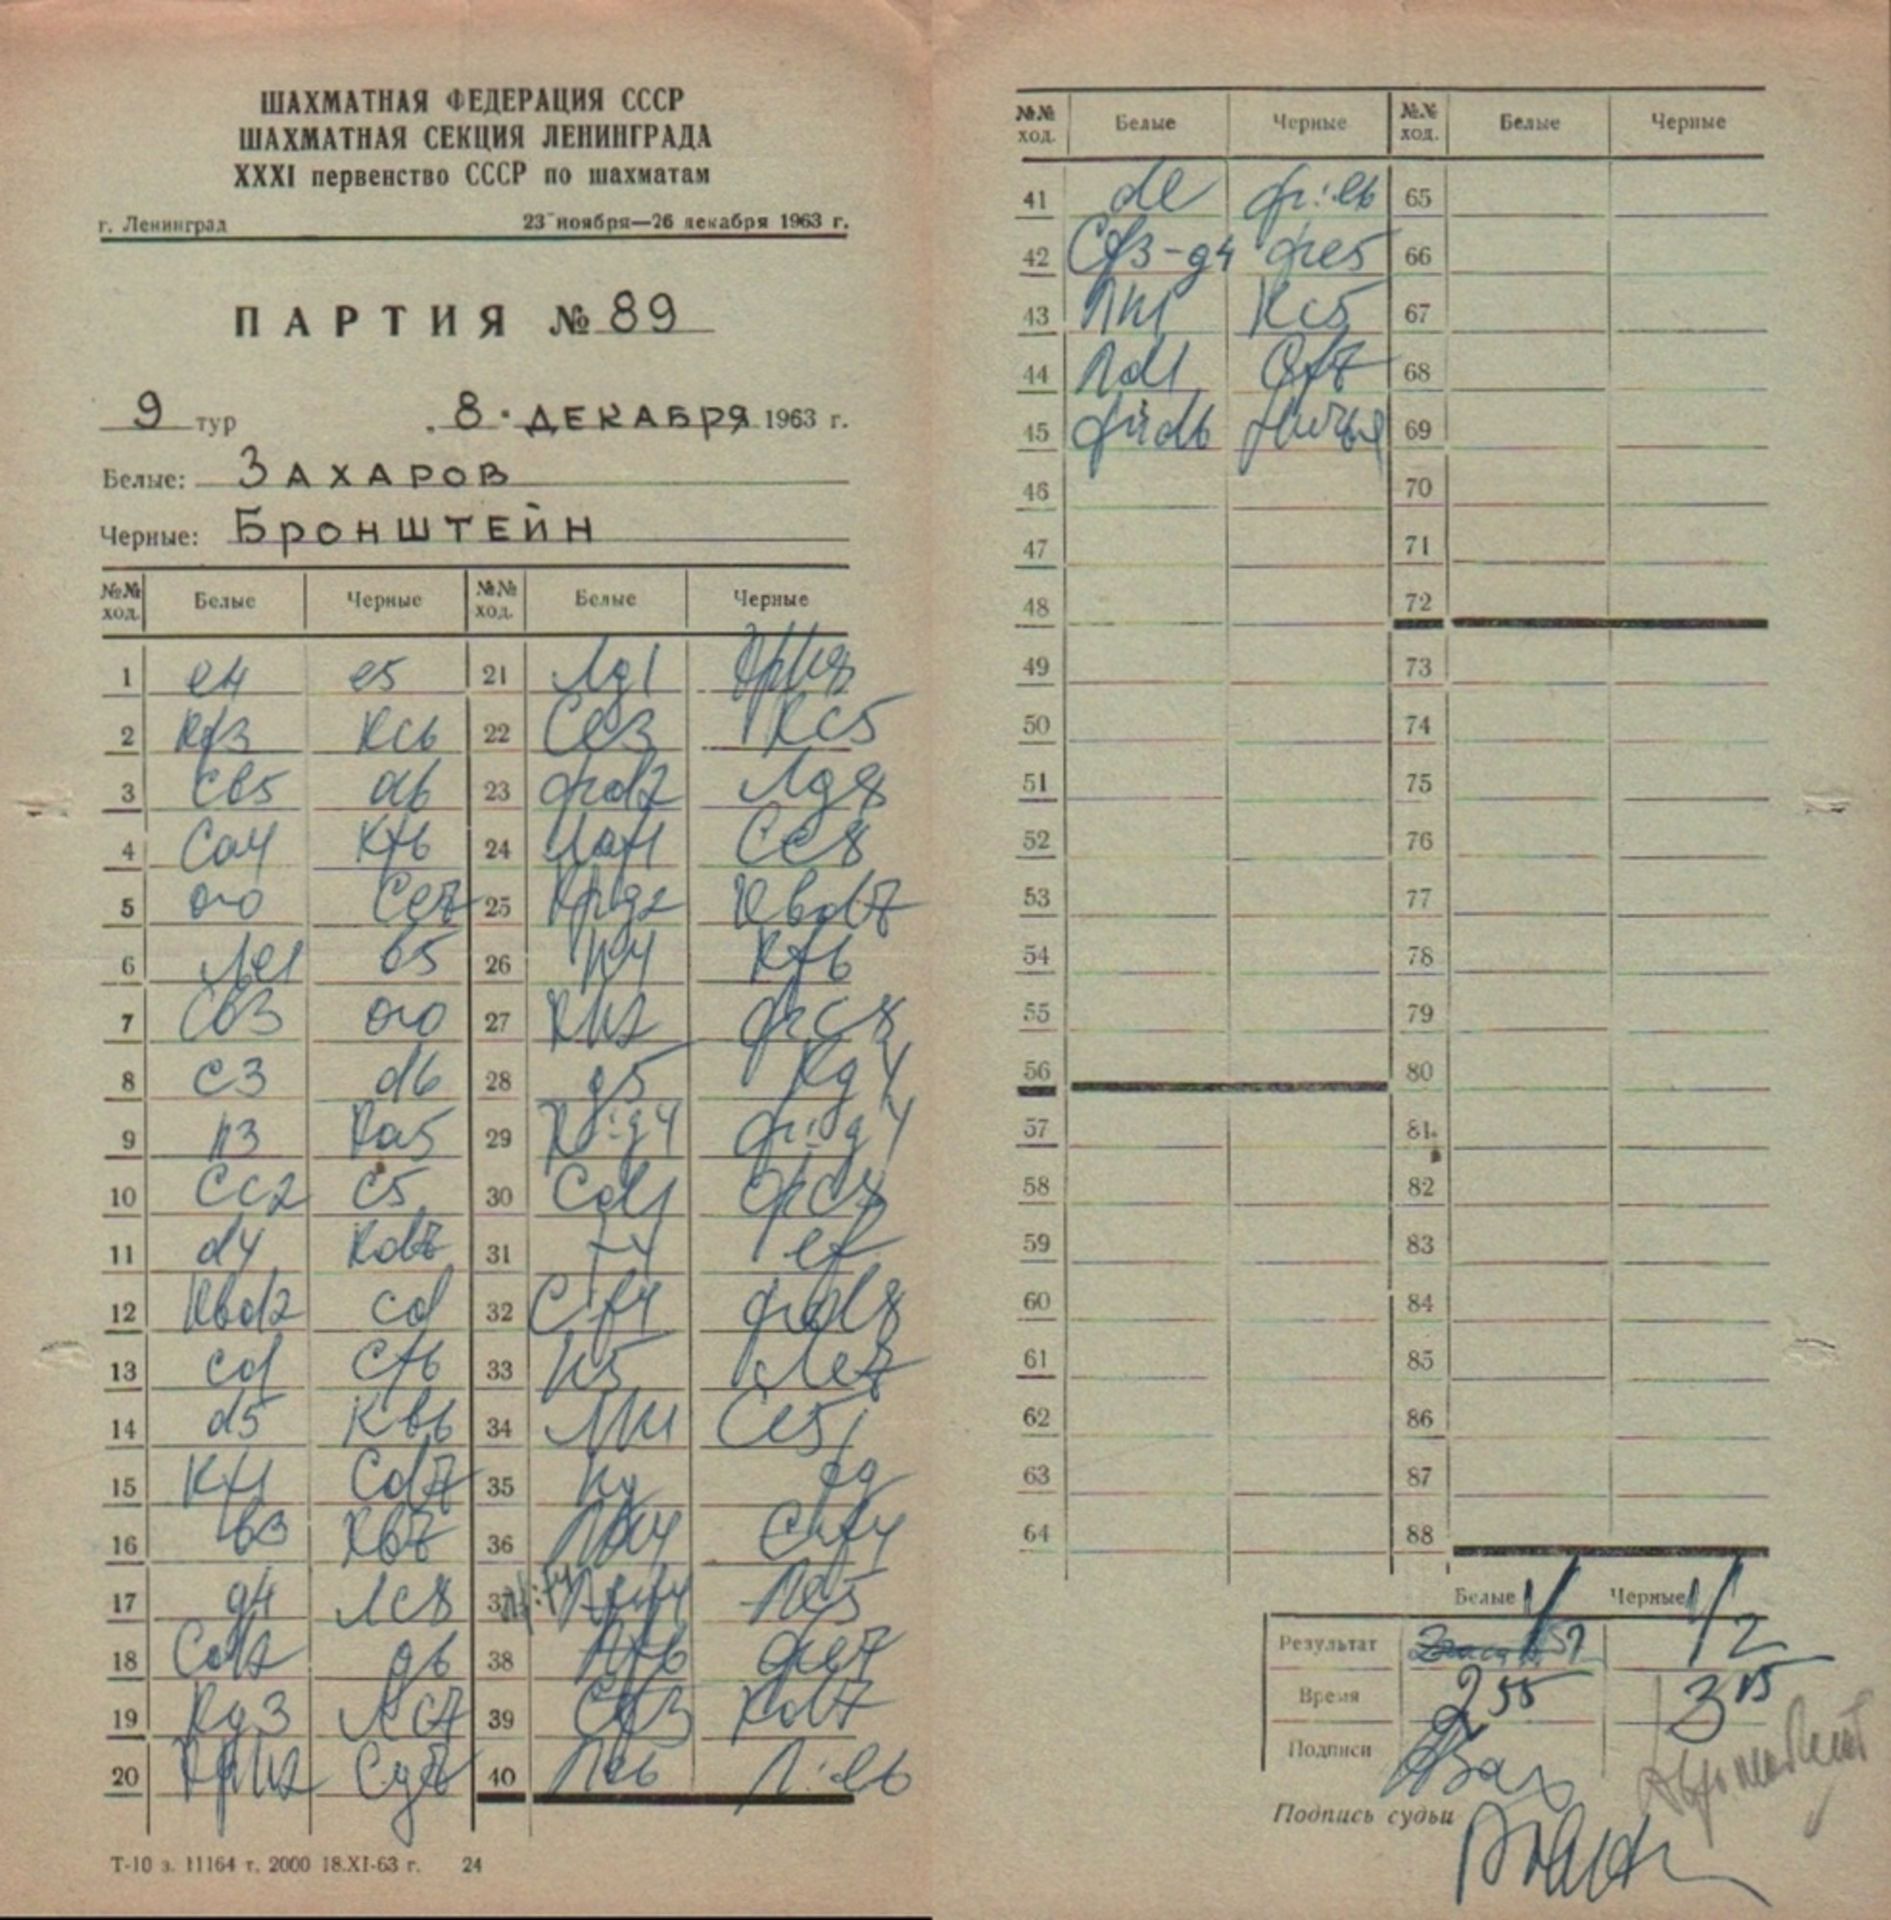 ШАХМАТНАЯ ФЕДЕРАЦИЯ СССР
ШАХМАТНАЯ СЕКЦИЯ ЛЕНИНГРАДА
XXXI первенство СССР по шахматам
г. Ленинград 23 ноября—26 декабря 1963 г.
ПАРТИЯ № 89
9 тур 8. ДЕКАБРЯ 1963 г.
Белые: ЗАХАРОВ
Черные: БРОНШТЕЙН
№№ ход. Белые Черные №№ ход. Белые Черные
1 e4 e5 21 Лg1 Крh8
2 Кf3 Кc6 22 Сe3 Кc5
3 Сb5 a6 23 Фd2 Лg8
4 Сa4 Кf6 24 Лaf1 Сe8
5 0-0 Сe7 25 Крg2 Кbd7
6 Лe1 b5 26 h4 Кf6
7 Сb3 0-0 27 Кh2 Фc8
8 c3 d6 28 g5 Кg4
9 h3 Кa5 29 К:g4 Ф:g4
10 Сc2 c5 30 Сd1 Фc8
11 d4 Кd7 31 f4 ef
12 Кbd2 cd 32 Сf4 Фd8
13 cd Сf6 33 h5 Лe7
14 d5 Кb6 34 Лh1 Сe5
15 Кf1 Сd7 35 hg fg
16 b3 Кb7 36 Лh4 Сf4
17 g4 Лc8 37 Л:f4 Лe5
18 Сd2 g6 38 Лf6 Фe7
19 Кg3 Лc7 39 Сf3 Кd7
20 Крh2 Сg7 40 Лe6 Л:e6
Т-10 з. 11164 т. 2000 18.XI-63 г. 24
№№ ход. Белые Черные №№ ход. Белые Черные
41 de Ф:e6 65
42 Сf3-g4 Фe5 66
43 Лh1 Кc5 67
44 Лd1 Сf7 68
45 Ф:d6 Ничья 69
46 70
47 71
48 72
49 73
50 74
51 75
52 76
53 77
54 78
55 79
56 80
57 81
58 82
59 83
60 84
61 85
62 86
63 87
64 88
Белые Черные
Результат 1/2 1/2
Время 2 55 3 15
Подписи
Подпись судьи